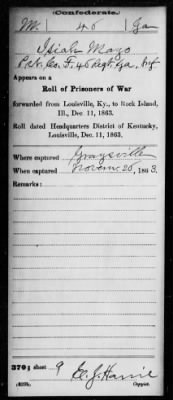 (Confederate.)
M. | 46 | Ga
Isiah Mayo
Pvt. Co. F, 46 Regt. Ga. Inf
Appears on a
Roll of Prisoners of War
forwarded from Louisville, Ky., to Rock Island,
Ill., Dec. 11, 1863.
Roll dated Headquarters District of Kentucky,
Louisville, Dec. 11, 1863.
Where captured Graysville
When captured Novem 26, 1863.
Remarks:
370; sheet 9
Copyist.